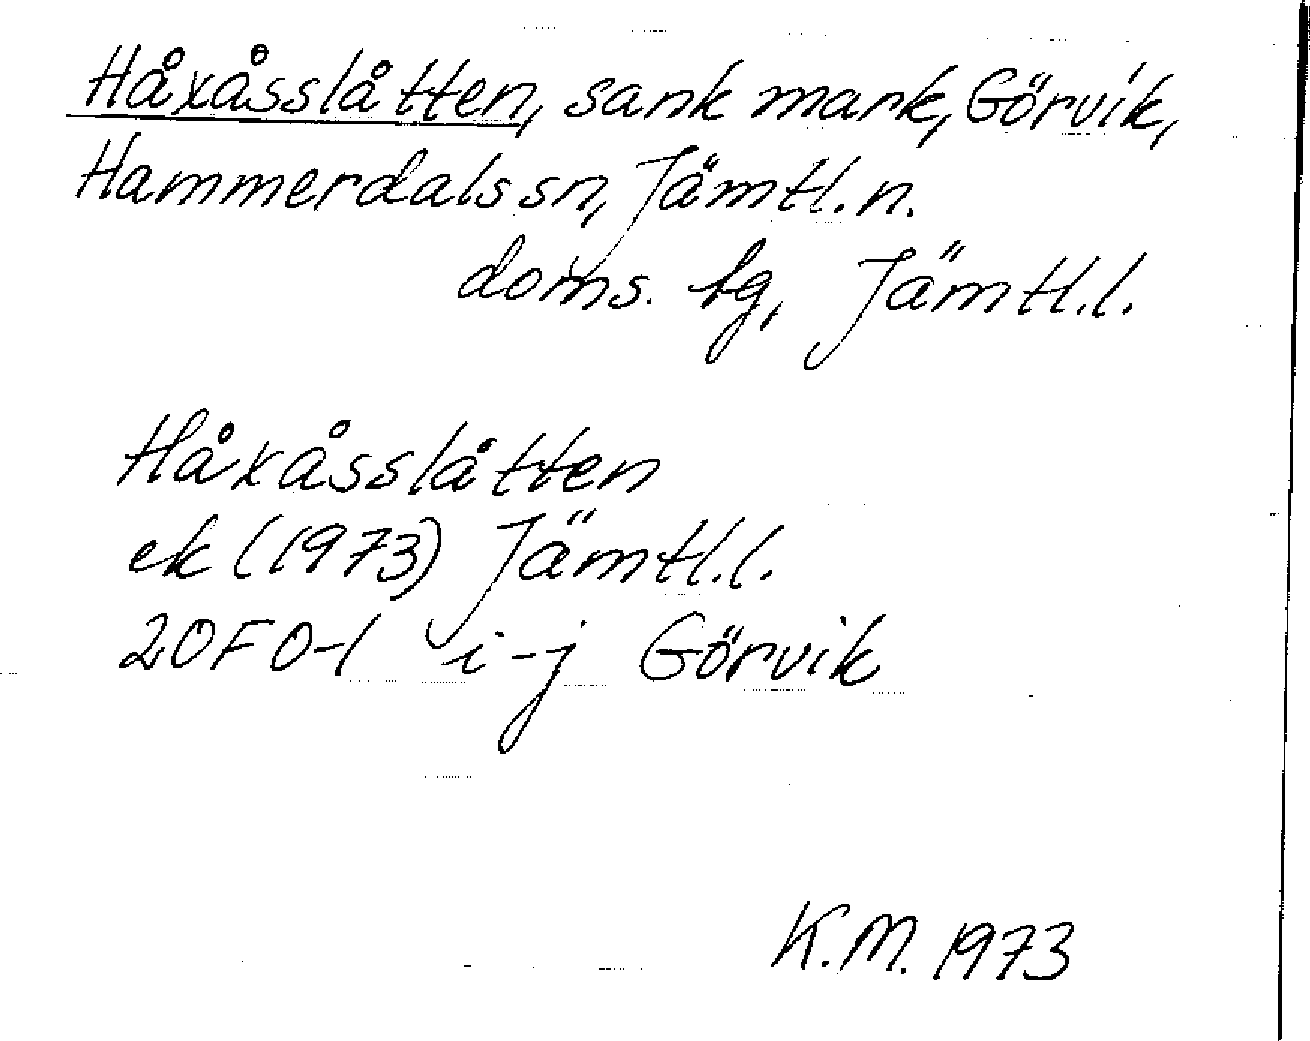 Håxåsslåtten, sank mark, Görvik,
Hammerdals sn, Jämtl. n.
doms. fg, Jämtl. l.
Håxåsslåtten
ek (1973) Jämtl. l.
20F 0-1 i-j Görvik
K.M. 1973